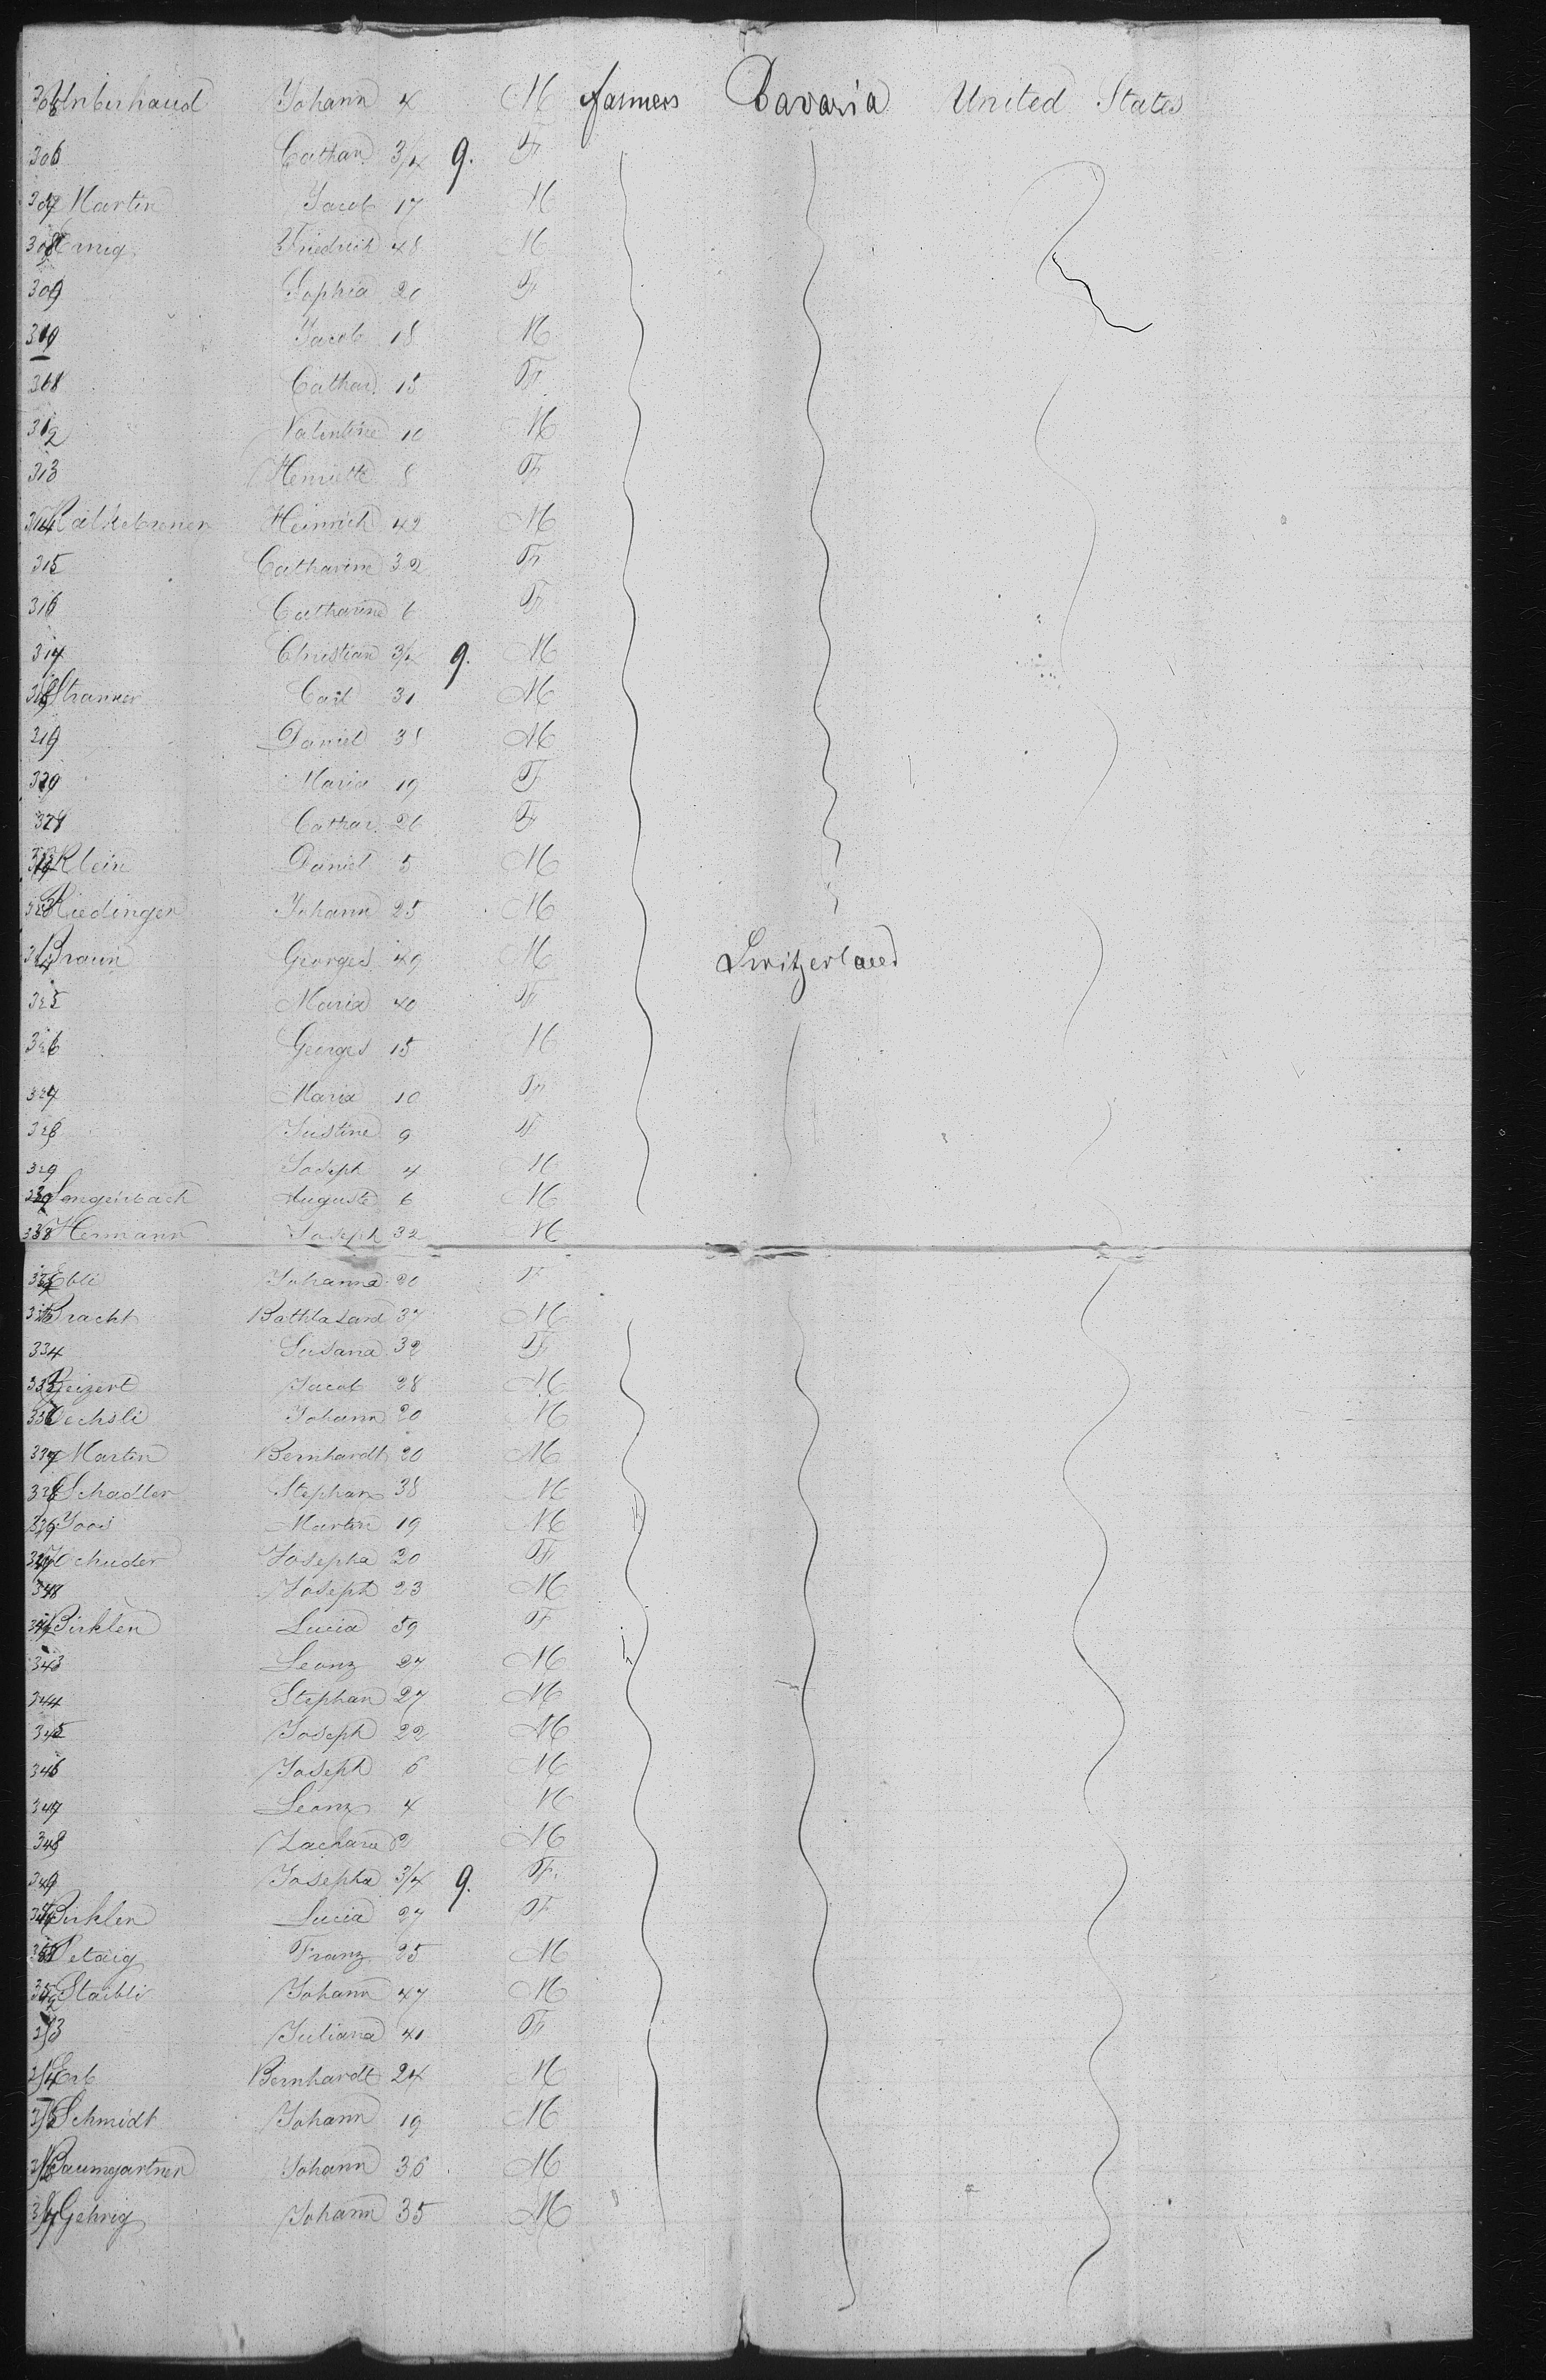 305 Unberhand Johann 4 M farmers Bavaria United States
306 Cathar. 3/4 9. F
307 Martin Jacob 17 M
308 Emig Friedrich 48 M
309 Sophia 20 F
310 Jacob 18 M
311 Cathar. 15 F
312 Valentine 10 M
313 Henriette 8 F
314 Heinrich 42 M
315 Catharine 32 F
316 Catharine 6 F
317 Christian 3/4 9. M
318 Stranner Carl 31 M
319 Daniel 38 M
320 Maria 19 F
321 Cathar. 26 F
322 Klein Daniel 5 M
323 Riedinger Johann 25 M
324 Braun Georges 49 M Switzerland
325 Maria 40 F
326 Georges 15 M
327 Maria 10 F
328 Justine 9 F
329 Joseph 4 M
330 Longenbach Auguste 6 M
331 Hermann Joseph 32 M
332 Ebli Johanna 20 F
333 Bracht Bathlasard 37 M
334 Susana 32 F
335 Geizert Jacob 28 M
336 Oechsli Johann 20 M
337 Martin Bernhardt 20 M
338 Schadler Stephan 38 M
339 Joos Martin 19 M
340 Josepha 20 F
341 Joseph 23 M
342 Birklen Lucia 59 F
343 Leonz 27 M
344 Stephan 27 M
345 Joseph 22 M
346 Joseph 6 M
347 Leonz 4 M
348 Zacharie 2 M
349 Josepha 3/4 9. F
350 Birklen Lucia 27 F
351 Petaig Franz 25 M
352 Staibli Johann 47 M
353 Juliana 41 F
354 Erb Bernhardt 24 M
355 Schmidt Johann 19 M
356 Baumgartner Johann 36 M
357 Gehrig Johann 35 M